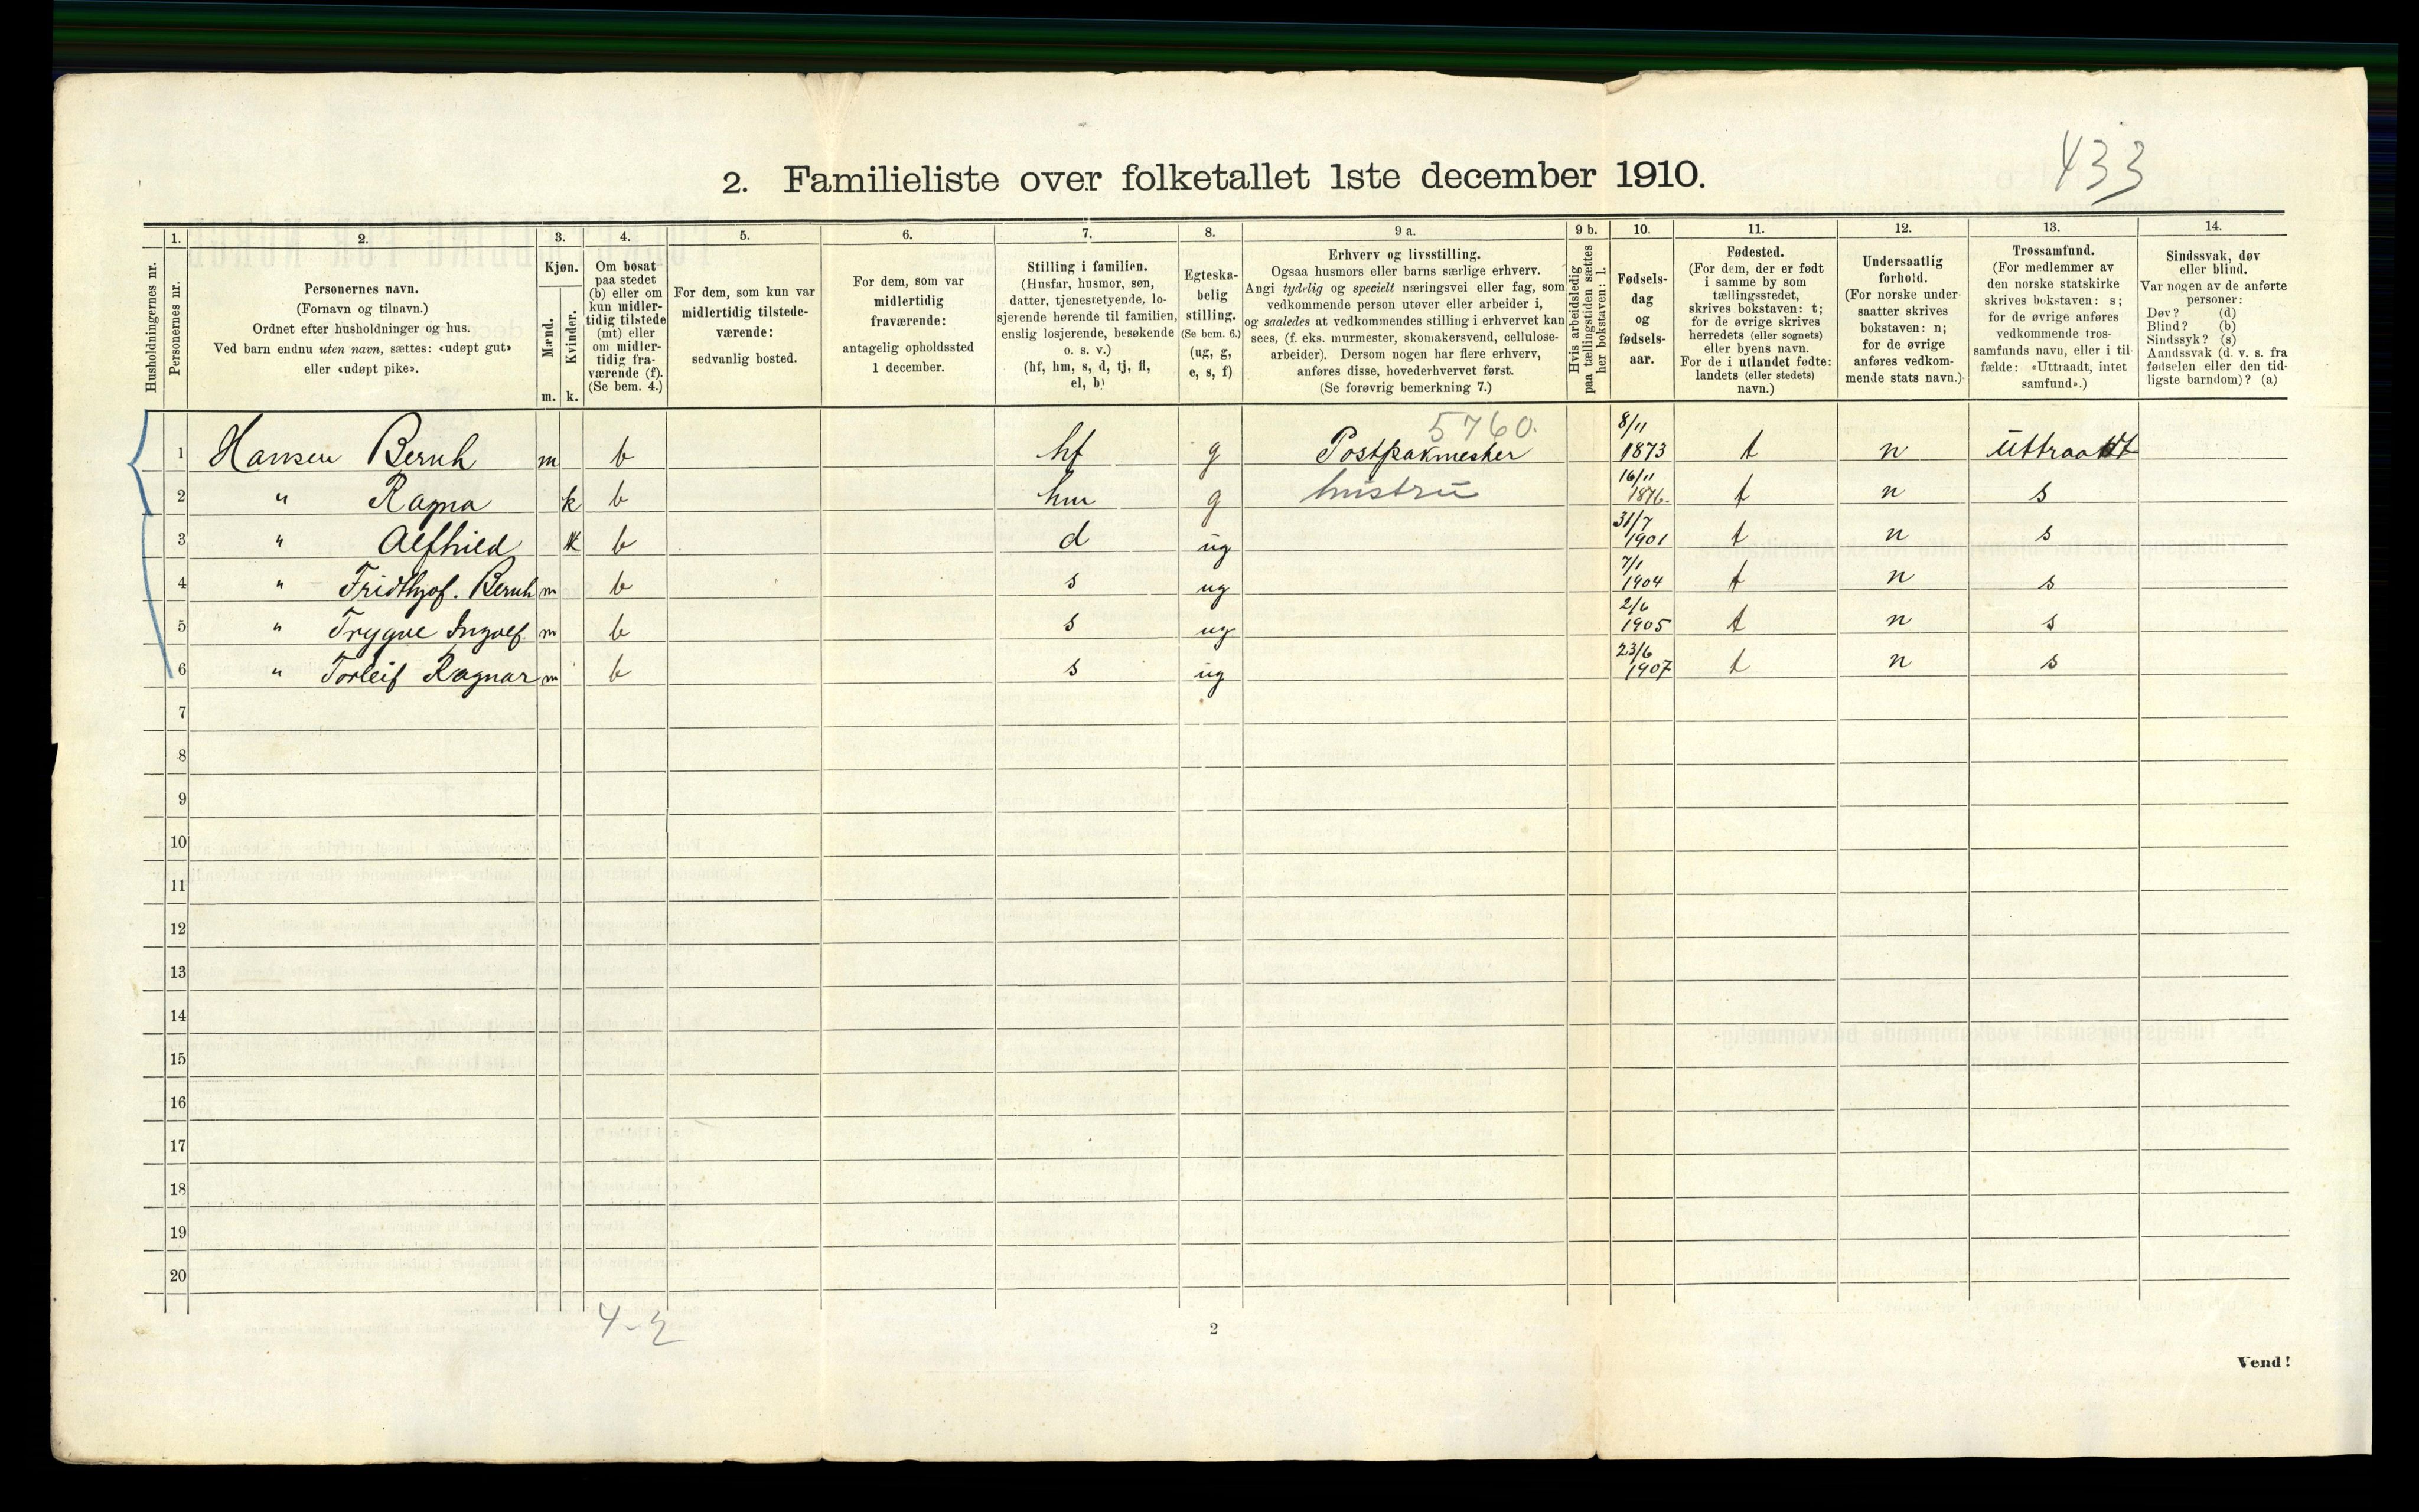 433
2. Familieliste over folketallet 1ste december 1910.
Husholdningernes nr.
1.
Personernes nr.
2.
Personernes navn.
(Fornavn og tilnavn.)
Ordnet efter husholdninger og hus.
Ved barn endnu uten navn, sættes: «udøpt gut»
eller «udøpt pike».
3.
Kjøn.
Mænd.
m.
Kvinder.
k.
4.
Om bosat
paa stedet
(b) eller om
kun midler-
tidig tilstede
(mt) eller
om midler-
tidig fra-
værende (f).
(Se bem. 4.)
5.
For dem, som kun var
midlertidig tilstede-
værende:
sedvanlig bosted.
6.
For dem, som var
midlertidig
fraværende:
antagelig opholdssted
1 december.
7.
Stilling i familien.
(Husfar, husmor, søn,
datter, tjenestetyende, lo-
sjerende hørende til familien,
enslig losjerende, besøkende
o. s. v.)
(hf, hm, s, d, tj, fl,
el, b)
8.
Egteska-
belig
stilling.
(Se bem. 6.)
(ug, g,
e, s, f)
9 a.
Erhverv og livsstilling.
Ogsaa husmors eller barns særlige erhverv.
Angi tydelig og specielt næringsvei eller fag, som
vedkommende person utøver eller arbeider i,
og saaledes at vedkommendes stilling i erhvervet kan
sees, (f. eks. murmester, skomakersvend, cellulose-
arbeider). Dersom nogen har flere erhverv,
anføres disse, hovederhvervet først.
(Se forøvrig bemerkning 7.)
9 b.
Hvis arbeidsledig
paa tællingstiden sættes
her bokstaven: l.
10.
Fødsels-
dag
og
fødsels-
aar.
11.
Fødested.
(For dem, der er født
i samme by som
tællingsstedet,
skrives bokstaven: t;
for de øvrige skrives
herredets (eller sognets)
eller byens navn.
For de i utlandet fødte:
landets (eller stedets)
navn.)
12.
Undersaatlig
forhold.
(For norske under-
saatter skrives
bokstaven: n;
for de øvrige
anføres vedkom-
mende stats navn.)
13.
Trossamfund.
(For medlemmer av
den norske statskirke
skrives bokstaven: s;
for de øvrige anføres
vedkommende tros-
samfunds navn, eller i til-
fælde: «Uttraadt, intet
samfund».)
14.
Sindssvak, døv
eller blind.
Var nogen av de anførte
personer:
Døv? (d)
Blind? (b)
Sindssyk? (s)
Aandssvak (d. v. s. fra
fødselen eller den tid-
ligste barndom)? (a)
5760.
1 Hansen Bernh m b hf g Postpakmester 8/11 1873 t n Uttraadt
2 " Ragna k b hm g hustru 16/11 1876. t n s
3 " Alfhild k b d ug 31/7 1901 t n s
4 " Fridthjof. Bernh m b s ug 7/1 1904 t n s
5 " Trygve Ingolf m b s ug 2/6 1905 t n s
6 " Torleif Ragnar m b s ug 23/6 1907 t n s
7
8
9
10
11
12
13
14
15
16
17
18
19
20
4-2
2
Vend!